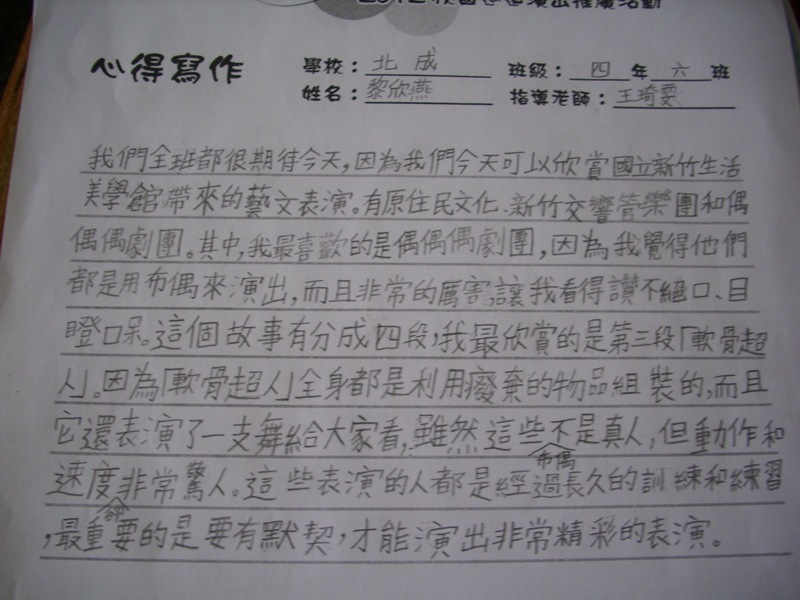 2012校園巡迴演出推廣活動
心得寫作 學校：北成 班級：四年六班
姓名：黎欣燕 指導老師：王琦雯
我們全班都很期待今天，因為我們今天可以欣賞國立新竹生活
美學館帶來的藝文表演。有原住民文化、新竹交響管樂團和偶
偶偶劇團。其中，我最喜歡的是偶偶偶劇團，因為我覺得他們
都是用布偶來演出，而且非常的厲害，讓我看得讚不絕口、目
瞪口呆。這個故事有分成四段，我最欣賞的是第三段「軟骨超
人」。因為「軟骨超人」全身都是利用廢棄的物品組裝的，而且
它還表演了一支舞給大家看，雖然這些布偶不是真人，但動作和
速度卻非常驚人。這些表演的人都是經過長久的訓練和練習
，最重要的是要有默契，才能演出非常精彩的表演。